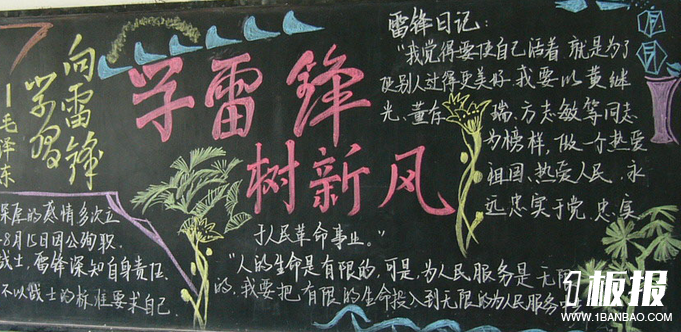 向雷锋
学习
—毛泽东
学雷锋
树新风
深厚的感情多次立
8月15日因公殉职.
战士,雷锋深知自身责任.
不以战士的标准要求自己.
雷锋日记:
"我觉得要使自己活着,就是为了
使别人过得更美好.我要以黄继
光、董存瑞、方志敏等同志
为榜样,做一个热爱
祖国、热爱人民、永
远忠实于党、忠实
于人民革命事业。"
"人的生命是有限的,可是,为人民服务是无限
的,我要把有限的生命投入到无限的为人民服务
板报
WWW.1BANBAO.COM